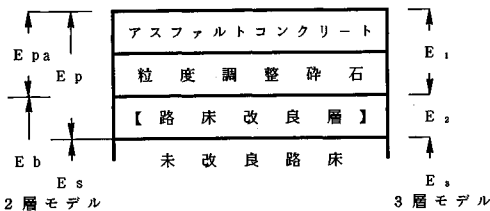 アスファルトコンクリート
粒度調整砕石
【路床改良層】
未改良路床
Epa
Ep
Eb
Es
2層モデル
E₁
E₂
E₃
3層モデル